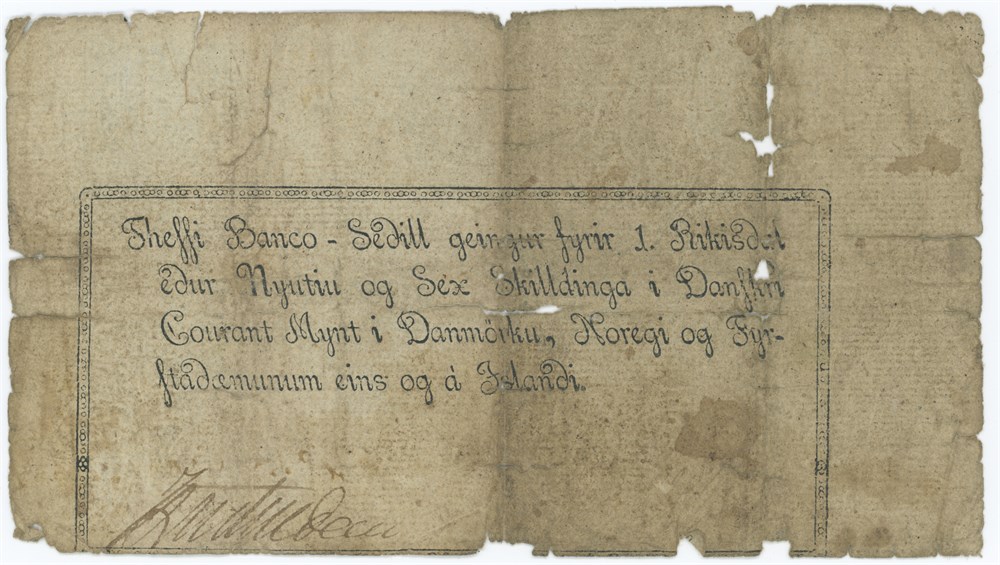 Thessi Banco - Sedill geingur fyrir 1. Rikisdal
edur Nyutiu og Sex Skilldinga i Danskri
Courant Mynt i Danmörku, Noregi og Fyr-
stadæmunum eins og á Islandi.